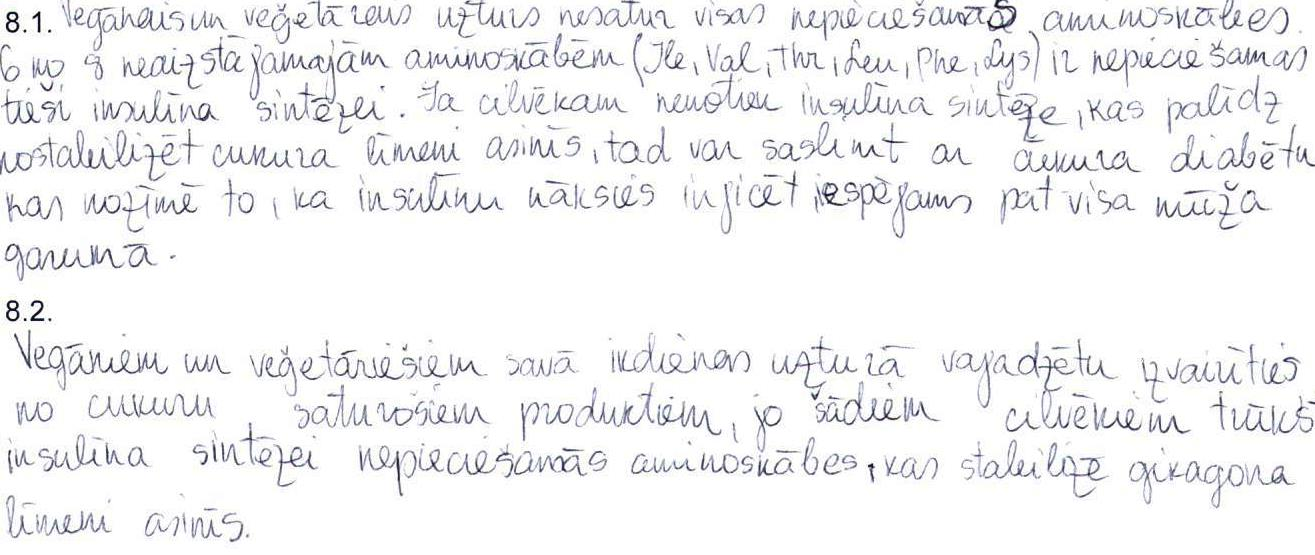 8.1. Vegānais un veģetārais uzturs nesatur visas nepieciešamās aminoskābes.
6 no 8 neaizstājamajām aminoskābēm (Ile, Val, Thr, Leu, Phe, Lys) ir nepieciešamas
tieši insulīna sintēzei. Ja cilvēkam nenotiek insulīna sintēze, kas palīdz
nostabilizēt cukura līmeni asinīs, tad var saslimt ar cukura diabētu
kas nozīmē to, ka insulīnu nāksies injicēt iespējams pat visa mūža
garumā.
8.2.
Vegāniem un veģetāriešiem savā ikdienas uzturā vajadzētu izvairīties
no cukuru saturošiem produktiem, jo šādiem cilvēkiem trūkst
insulīna sintēzei nepieciešamās aminoskābes, kas stabilizē glikagona
līmeni asinīs.